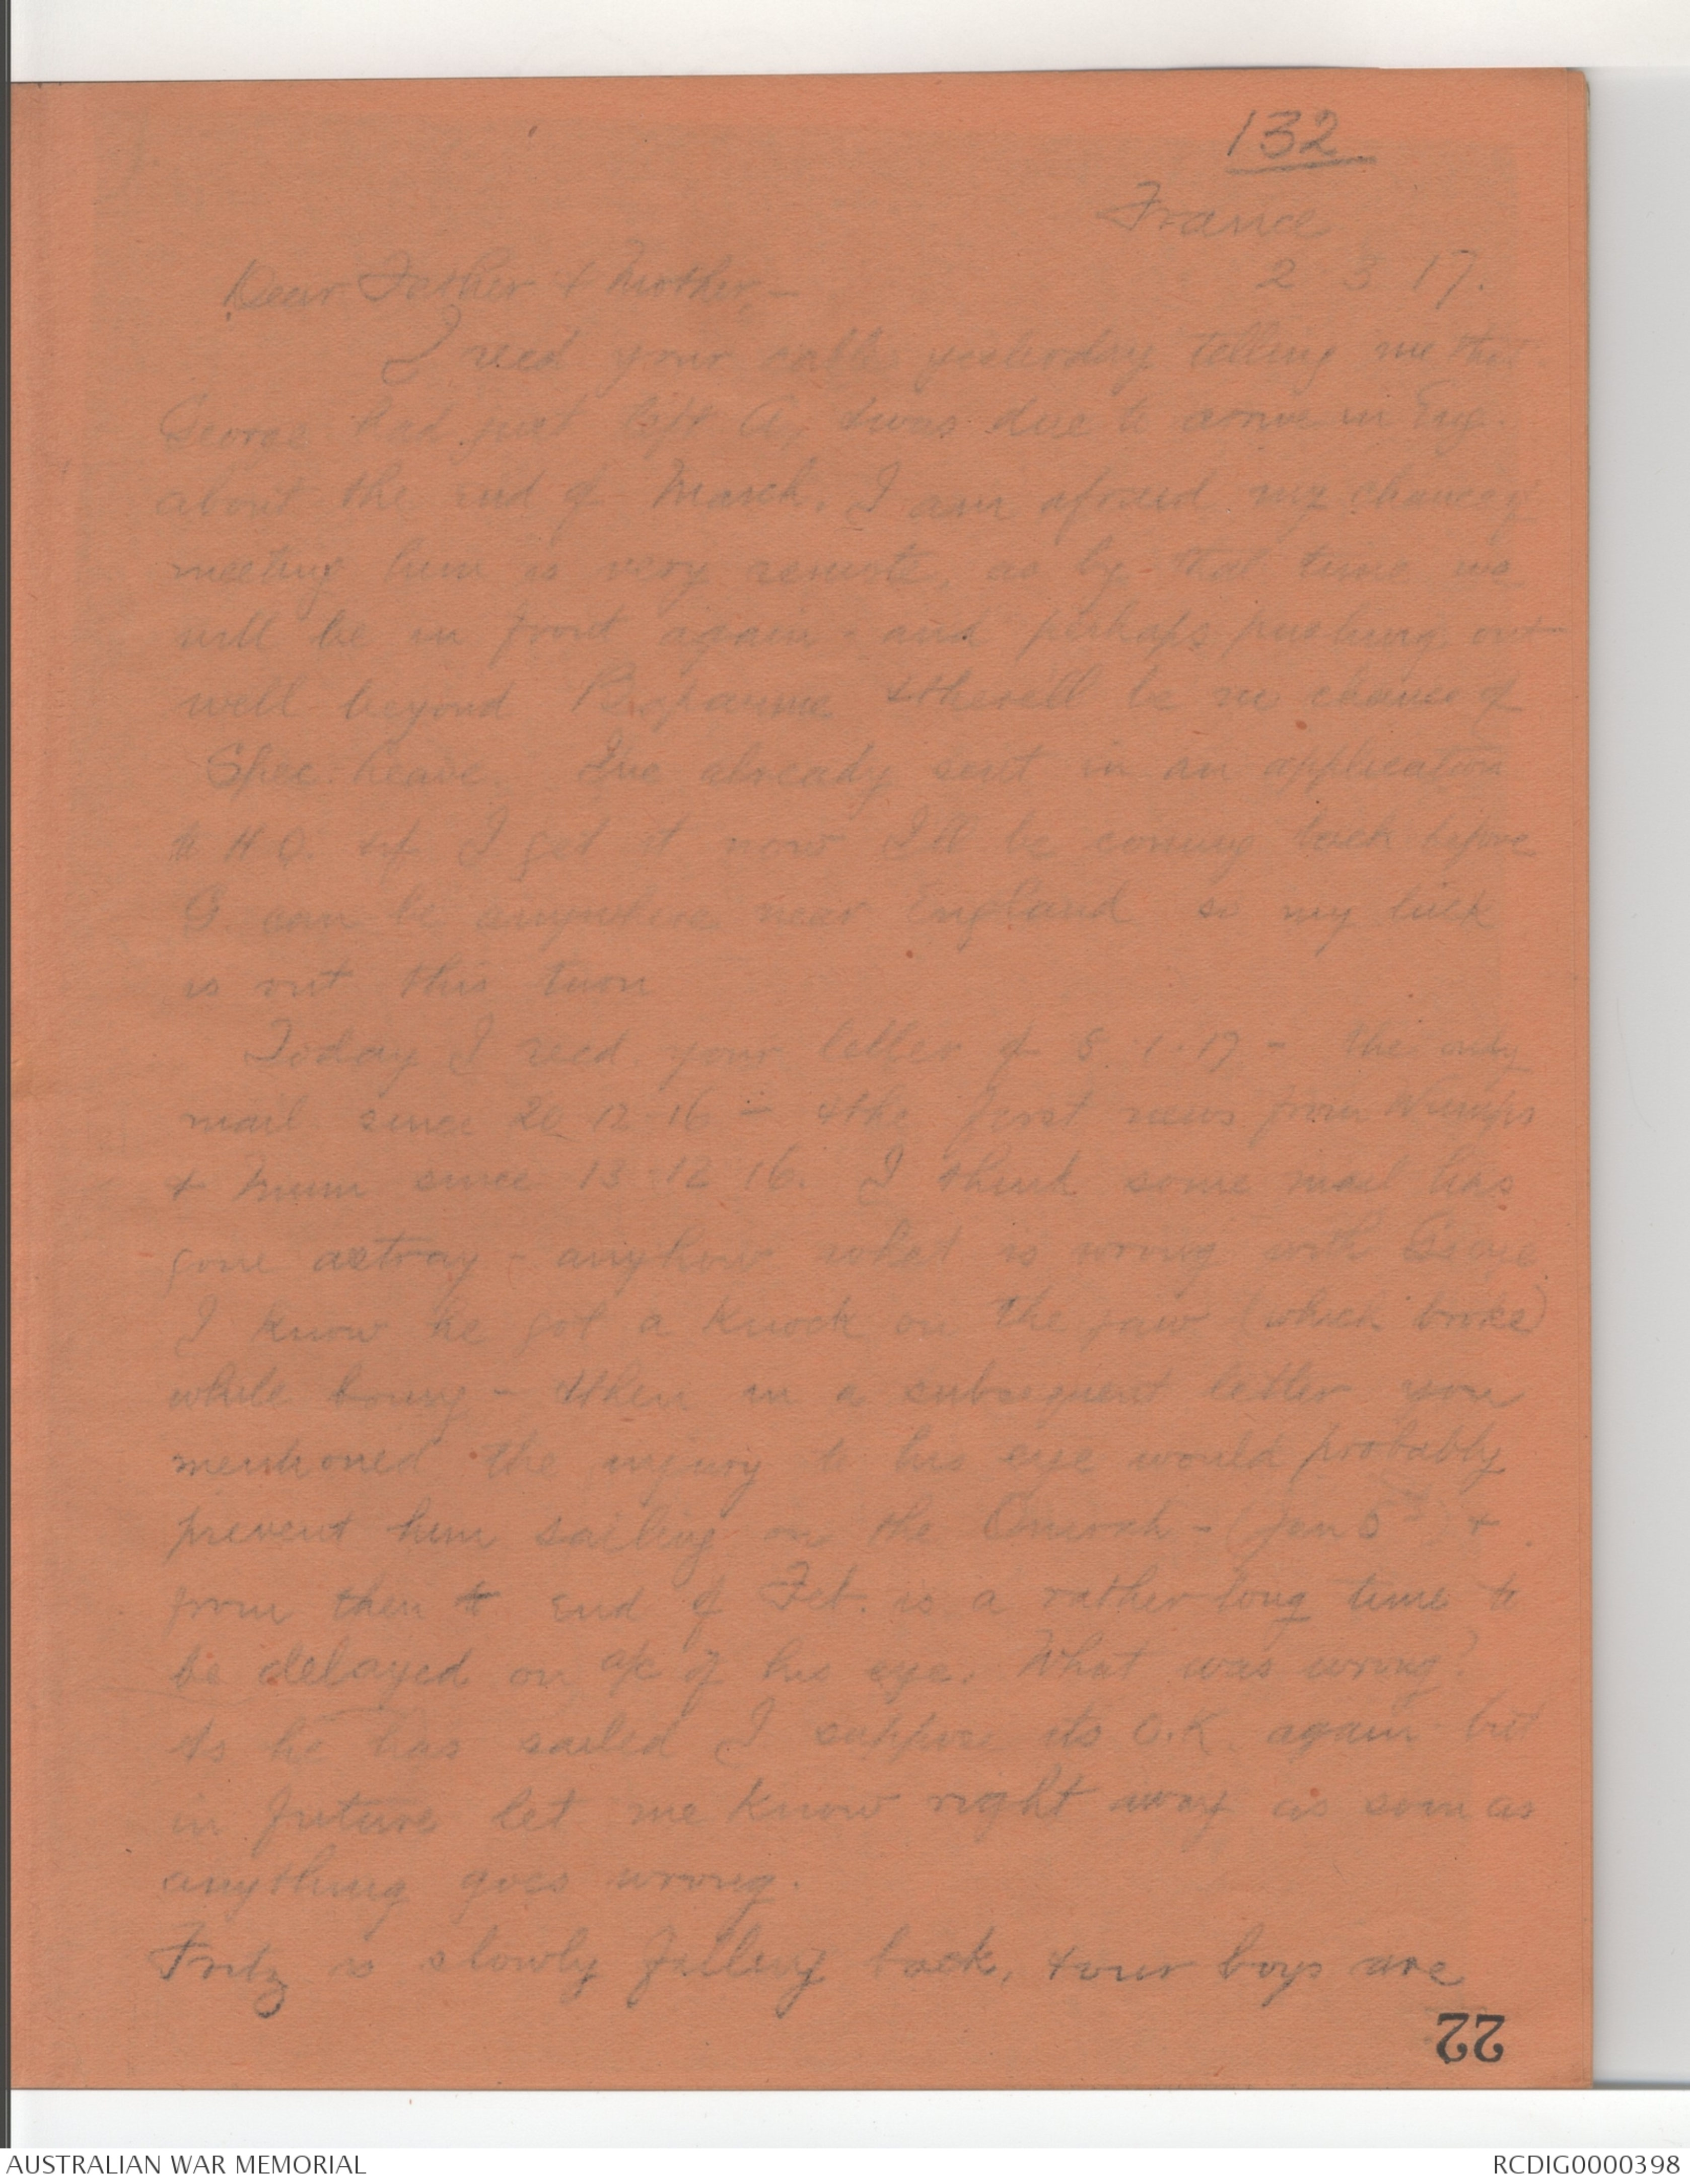 132
France
2 3 17.
Dear Father & Mother,-
I recd your cable yesterday telling me that
George had just left A, & was due to arrive in Eng.
about the end of March. I am afraid my chance of
meeting him is very remote, as by that time we
will be in front again - and perhaps pushing out
well beyond Bapaume & there'll be no chance of
Spec. leave. I've already sent in an application
to H.Q. & if I get it now I'll be coming back before
G can be anywhere near England so my luck
is out this turn
Today I recd. your letter of 8.1.17 - the only
mail since 20.12.16 - & the first news from
& Mum since 13.12.16. I think some mail has
gone astray - anyhow what is wrong with George
I know he got a knock on the jaw (which broke)
while boxing - & then in a subsequent letter you
mentioned the injury to his eye would probably
prevent him sailing on the Omrah - (Jan 5th) &
from then to end of Feb. is a rather long time to
be delayed on a/c of his eye. What was wrong?
As he has sailed I suppose its O.K. again but
in future let me know right away as soon as
anything goes wrong.
Fritz is slowly falling back, & our boys are
22
AUSTRALIAN WAR MEMORIAL
RCDIG0000398